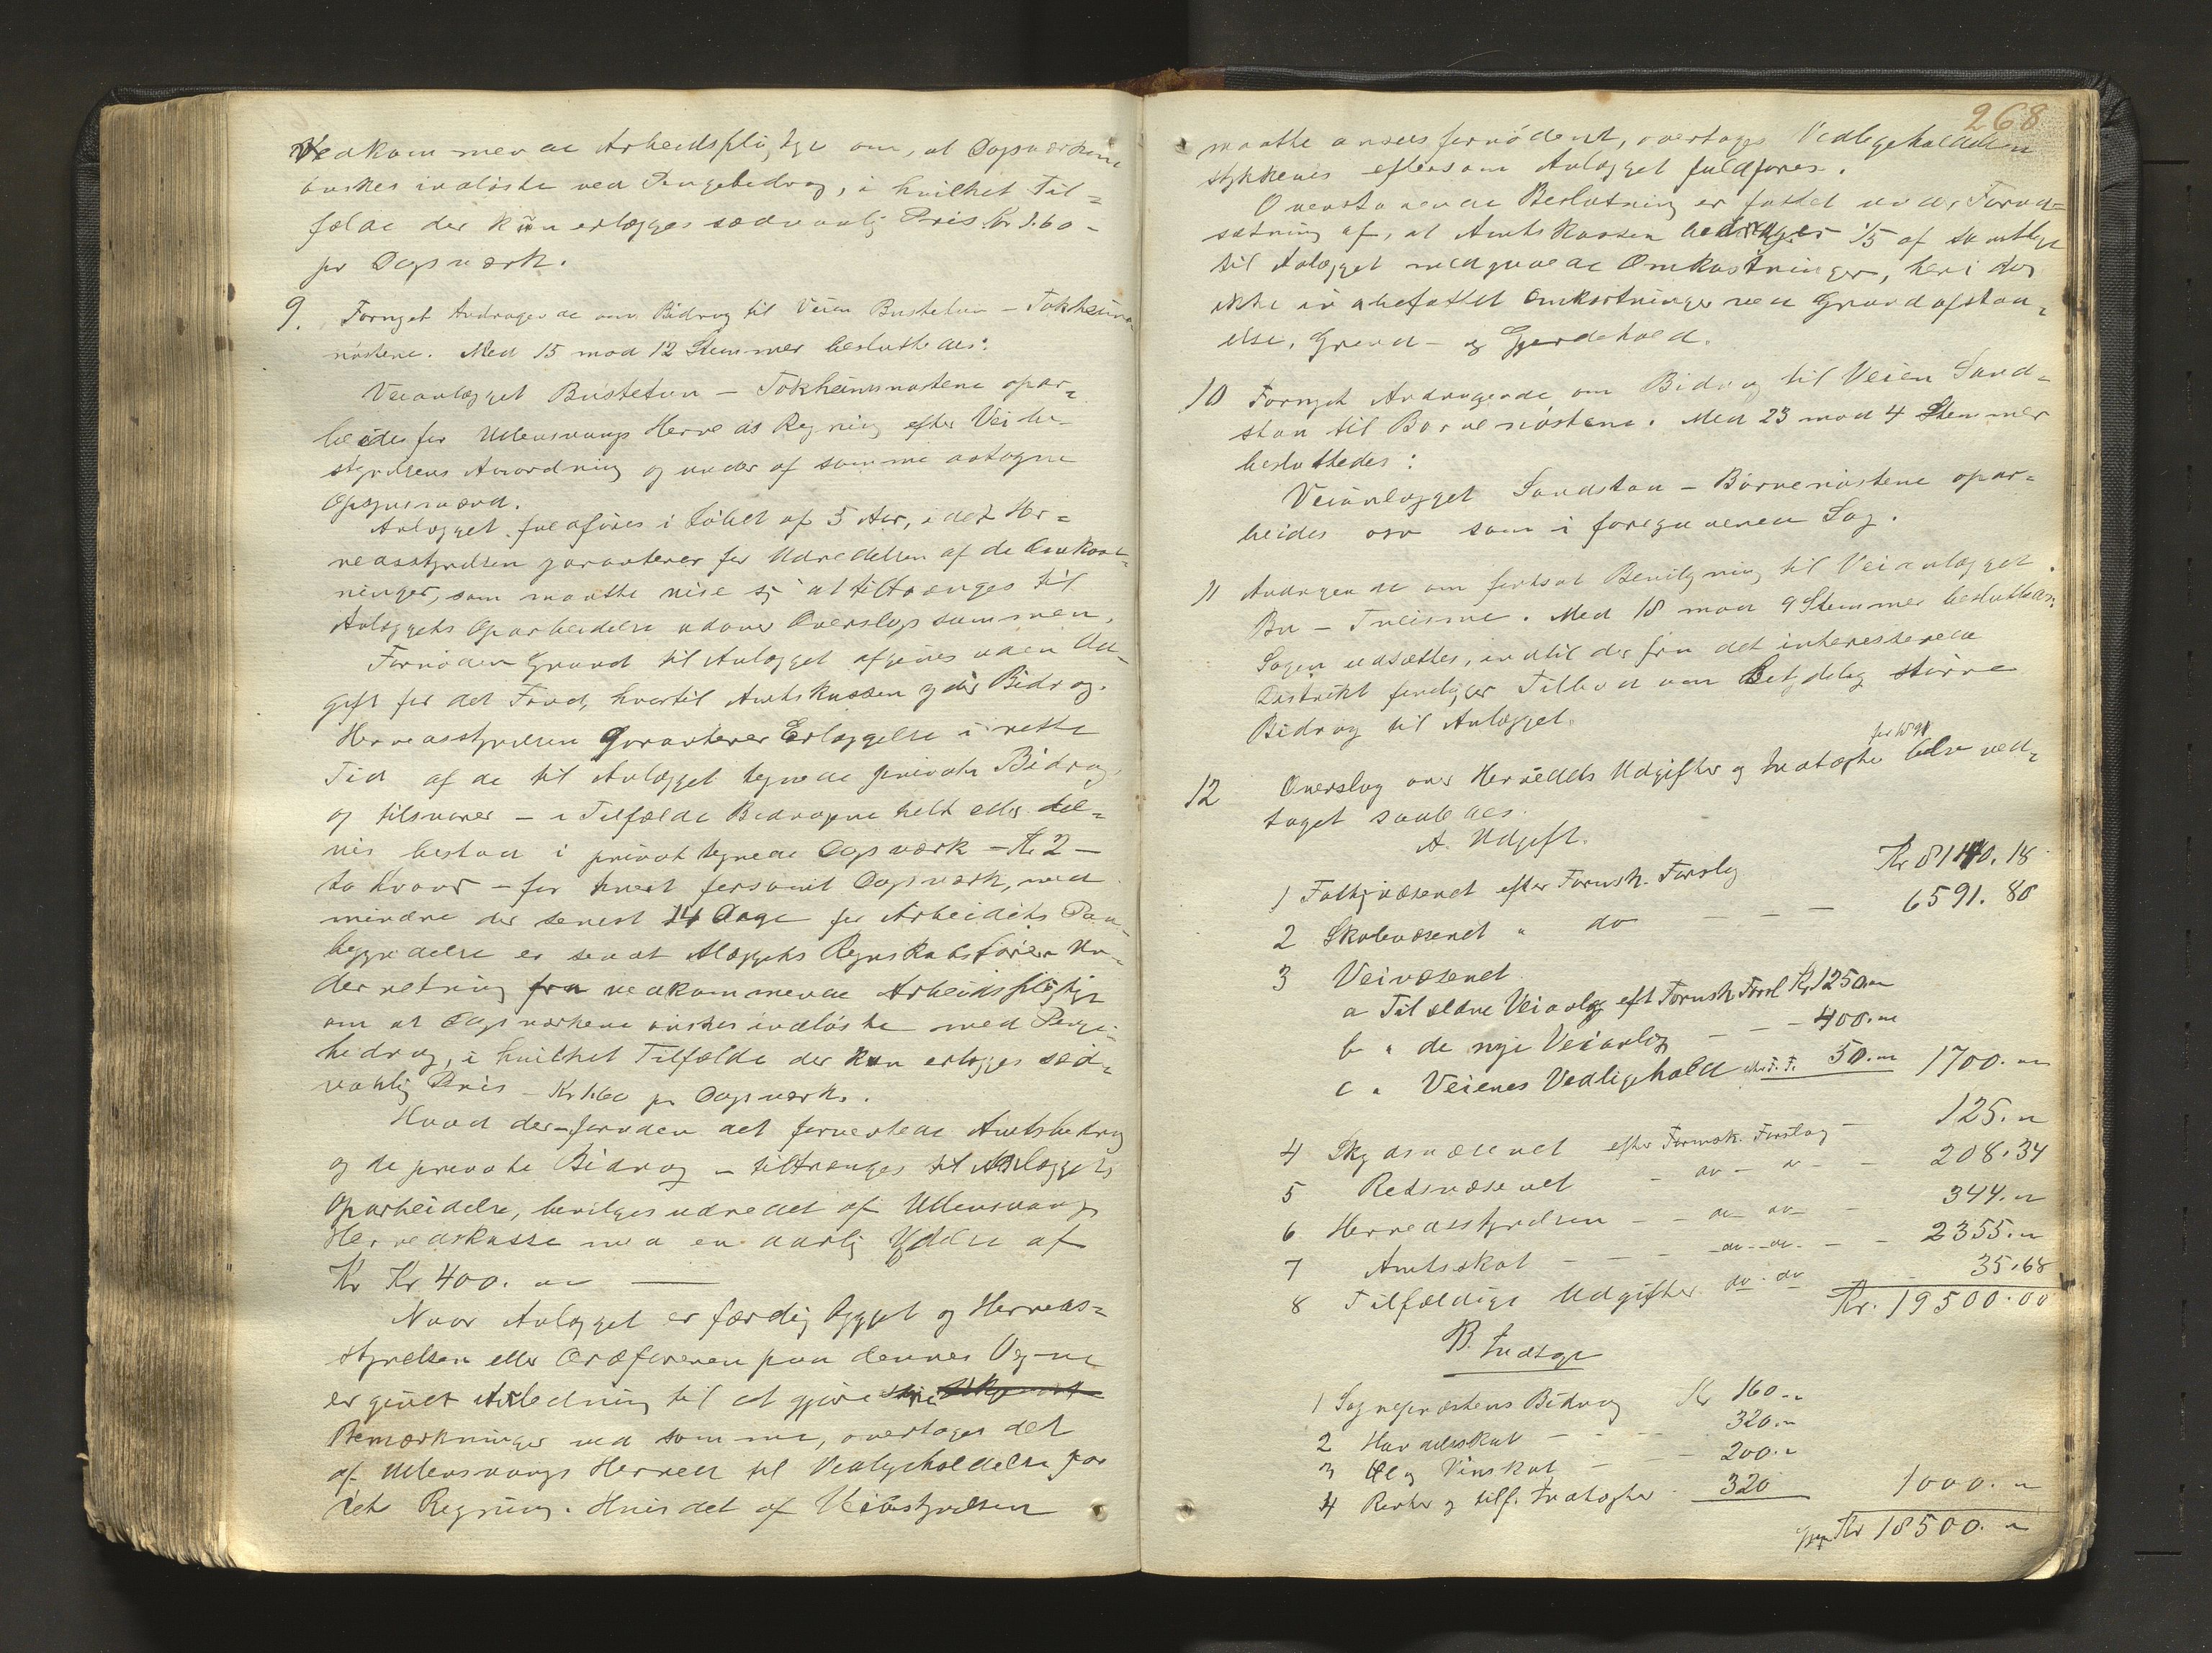 Vedkommende Arbeidspligtige om, at Dagsværkene
ønskes indløste ved Pengebidrag, i hvilket Til=
fælde der kun erlægges sædvanlig Pris Kr 1.60 -
pr Dagsværk.
9. Fornyet Andragende om Bidrag til Veien Bustetun - Tokheims
nøstene. Med 15 mod 12 Stemmer besluttedes:
Veianlægget Bustetun - Tokheimsnøstene opar=
beides for Ullensvangs Herreds Regning efter Veibe-
styrelsens Anordning og under af samme antagne
Opsynsmænd.
Anlægget fuldføres i Løbet af 5 Aar, idet Her=
redsstyrelsen garanterer for Udredelsen af de Omkost=
ninger, som maatte vise sig at tiltrænges til
Anlæggets Oparbeidelse udover Overslagssummen.
Fornøden Grund til Anlægget afgives uden Ud=
gift for det Fond, hvortil Amtskassen yder Bidrag.
Herredsstyrelsen Garanterer Erlæggelse i rette
Tid af de til Anlægget tegnede private Bidrag,
og tilsvarer - i Tilfælde Bidragene helt eller del=
vis bestaa i privat tegnede Dagsværk - Kr 2 -
to Kroner - for hvert forsømt Dagsværk, med
mindre der senest 14 Dage før Arbeidets Paa=
begyndelse er sendt Anlæggets Regnskabsfører Un=
derretning fra vedkommende Arbeidspligtige
om at Dagsværkene ønskes indløste med Penge=
bidrag, i hvilket Tilfælde der kun erlægges sæd=
vanlig Pris - Kr 1.60 pr Dagsværk.
Hvad der - foruden det forventede Amtsbidrag
og de private Bidrag - tiltrænges til Anlæggets
Oparbeidelse, bevilges udredet af Ullensvangs
Herredskasse med en aarlig Ydelse af
Kr Kr 400. "
Naar Anlægget er færdig bygget og Herreds=
styrelsen eller Ordføreren paa dennes Vegne
er givet Anledning til at gjøre sine
Bemærkninger ved samme, overtages det
af Ullensvangs Herred til Vedligeholdelse for
dets Regning. Hvis det af Veibestyrelsen
268
maatte ansees fornødent, overtages Vedligeholdelsen
stykkevis eftersom Anlægget fuldføres.
Ovenstaaende Beslutning er fattet under Forud=
sætning af, at Amtskassen bidrager 1/5 af samtlige
til Anlægget medgaaende Omkostninger, heri dog
ikke indbefattet Omkostninger ved Grundafstaa=
else, Grind- og Gjerdehold.
10 Fornyet Andragende om Bidrag til Veien Sand=
støa til Børvenøstene. Med 23 mod 4 Stemmer
besluttedes:
Veianlægget Sandstøa - Børvenøstene opar=
beides osv som i foregaaende Sag.
11 Andragende om fortsat Bevilgning til Veianlægget
Bu - Tveisme. Med 18 mod 9 Stemmer besluttedes:
Sagen udsættes, indtil der fra det interesserede
Distrikt foreligger Tilbud om Betydelig større
Bidrag til Anlægget.
12 Overslag over Herredets Udgifter og Indtægter for 1891 blev ved=
taget saaledes.
A. Udgift.
1 Fattigvæsenet efter Formsk. Forslag Kr 8140.18
2 Skolevæsenet " do - - - 6591.80
3 Veivæsenet
a Til ældre Veianlæg eft Formsk Forsl Kr 1250."
b " de nye Veianlæg - - - 400."
c " Veienes Vedligehold efter F. F. 50." 1700."
4 Skydsvæsenet efter Formsk. Forslag - 125."
5 Retsvæsenet - do - " - - 208.34
6 Herredsstyrelsen - - do do - 344."
7 Amtsskat - - - do - do - - 2355."
8 Tilfældige Udgifter do - do 35.68
Kr. 19500.00
B. Indtægt
1 Sognepræstens Bidrag Kr 160."
2 Handelsskat - - - 320."
3 Øl og Vinskat - - - 200."
4 Renter og tilf. Indtægter 320 1000."
Kr 18500."